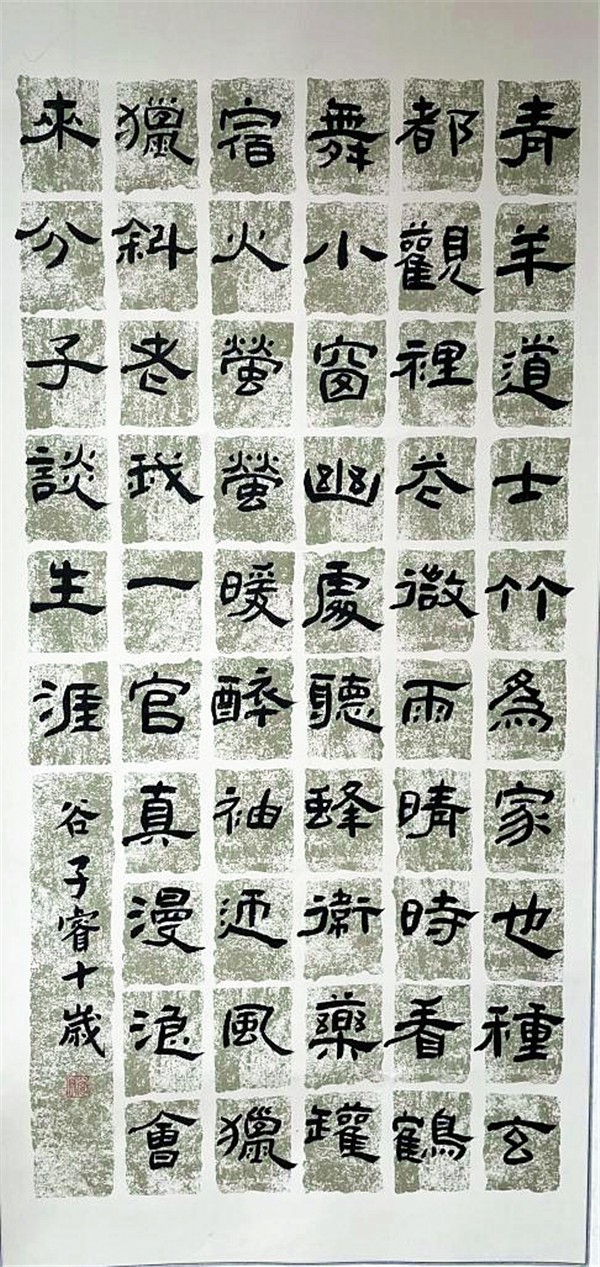 青羊道士竹為家也種玄
都觀裡花微雨晴時看鶴
舞小窗幽處聽蜂衙藥罐
宿火螢螢暖醉袖迎風獵
獵斜老我一官真漫浪會
來分子談生涯
谷子睿十歲